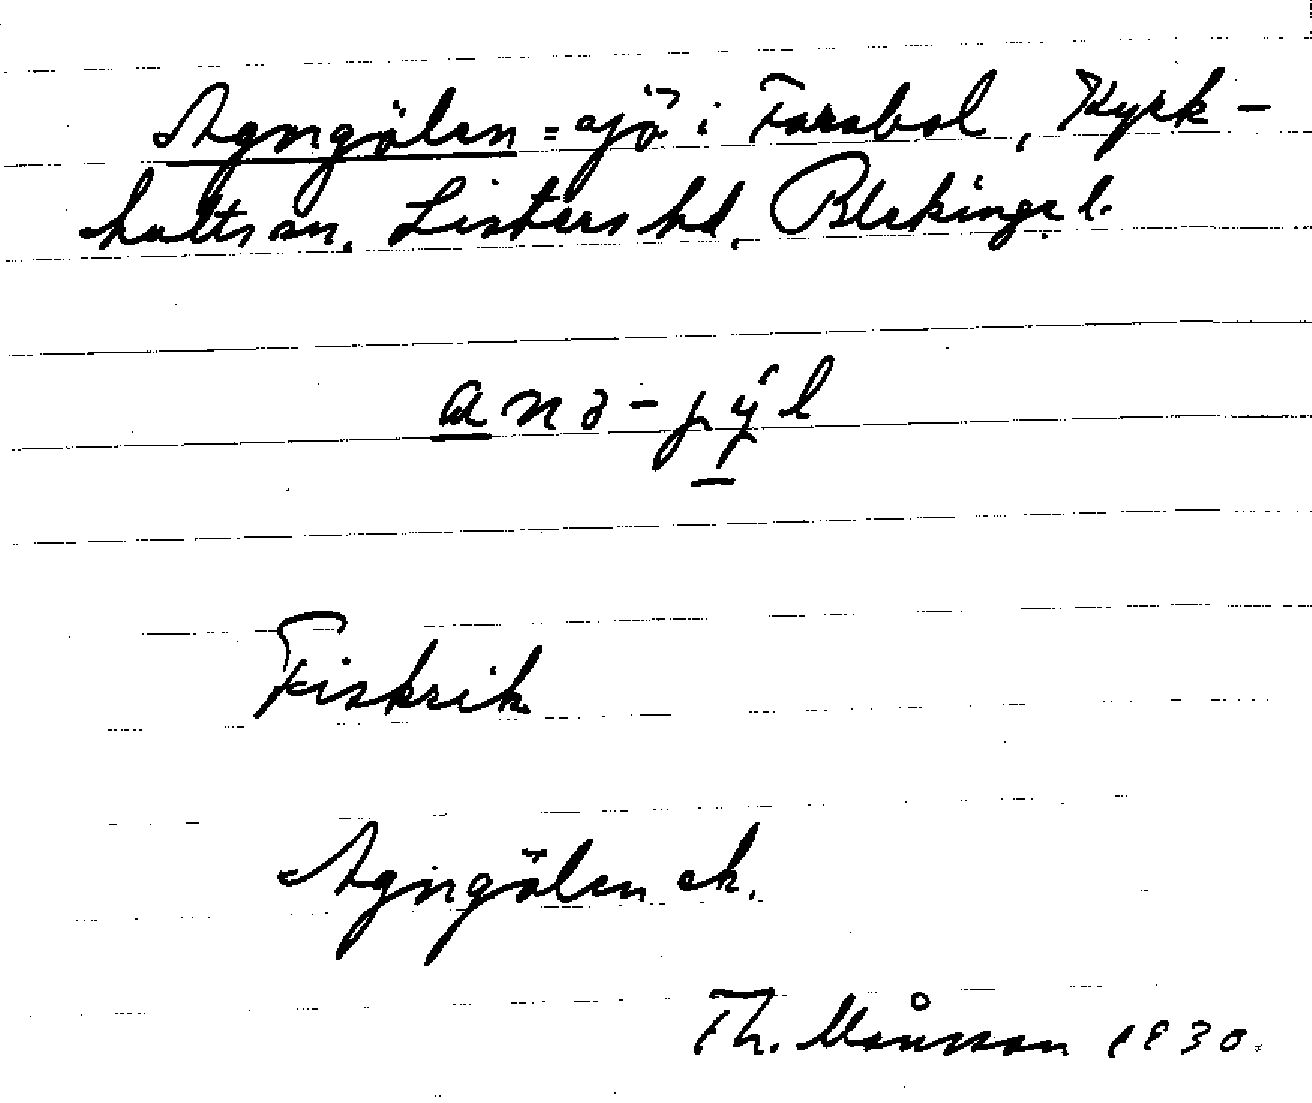 Agngölen = sjö i Farabol, Kyrk-
hults sn, Listers hd, Blekinge l.
anə-jyl
Fiskrik
Agngölen ek.
Th. Månsson 1930.